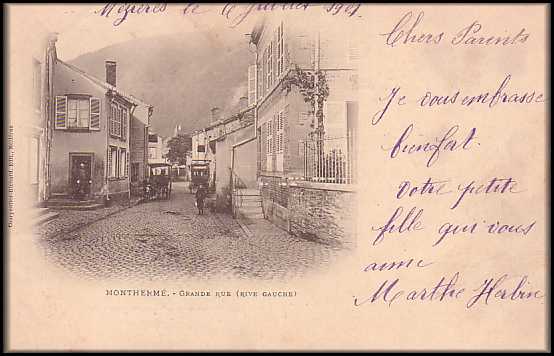 Mézières le 6 Juillet 1901
Chers Parents
Je vous embrasse
bien fort.
Votre petite
fille qui vous
aime
Marthe Herbin
MONTHERMÉ. - GRANDE RUE (RIVE GAUCHE)